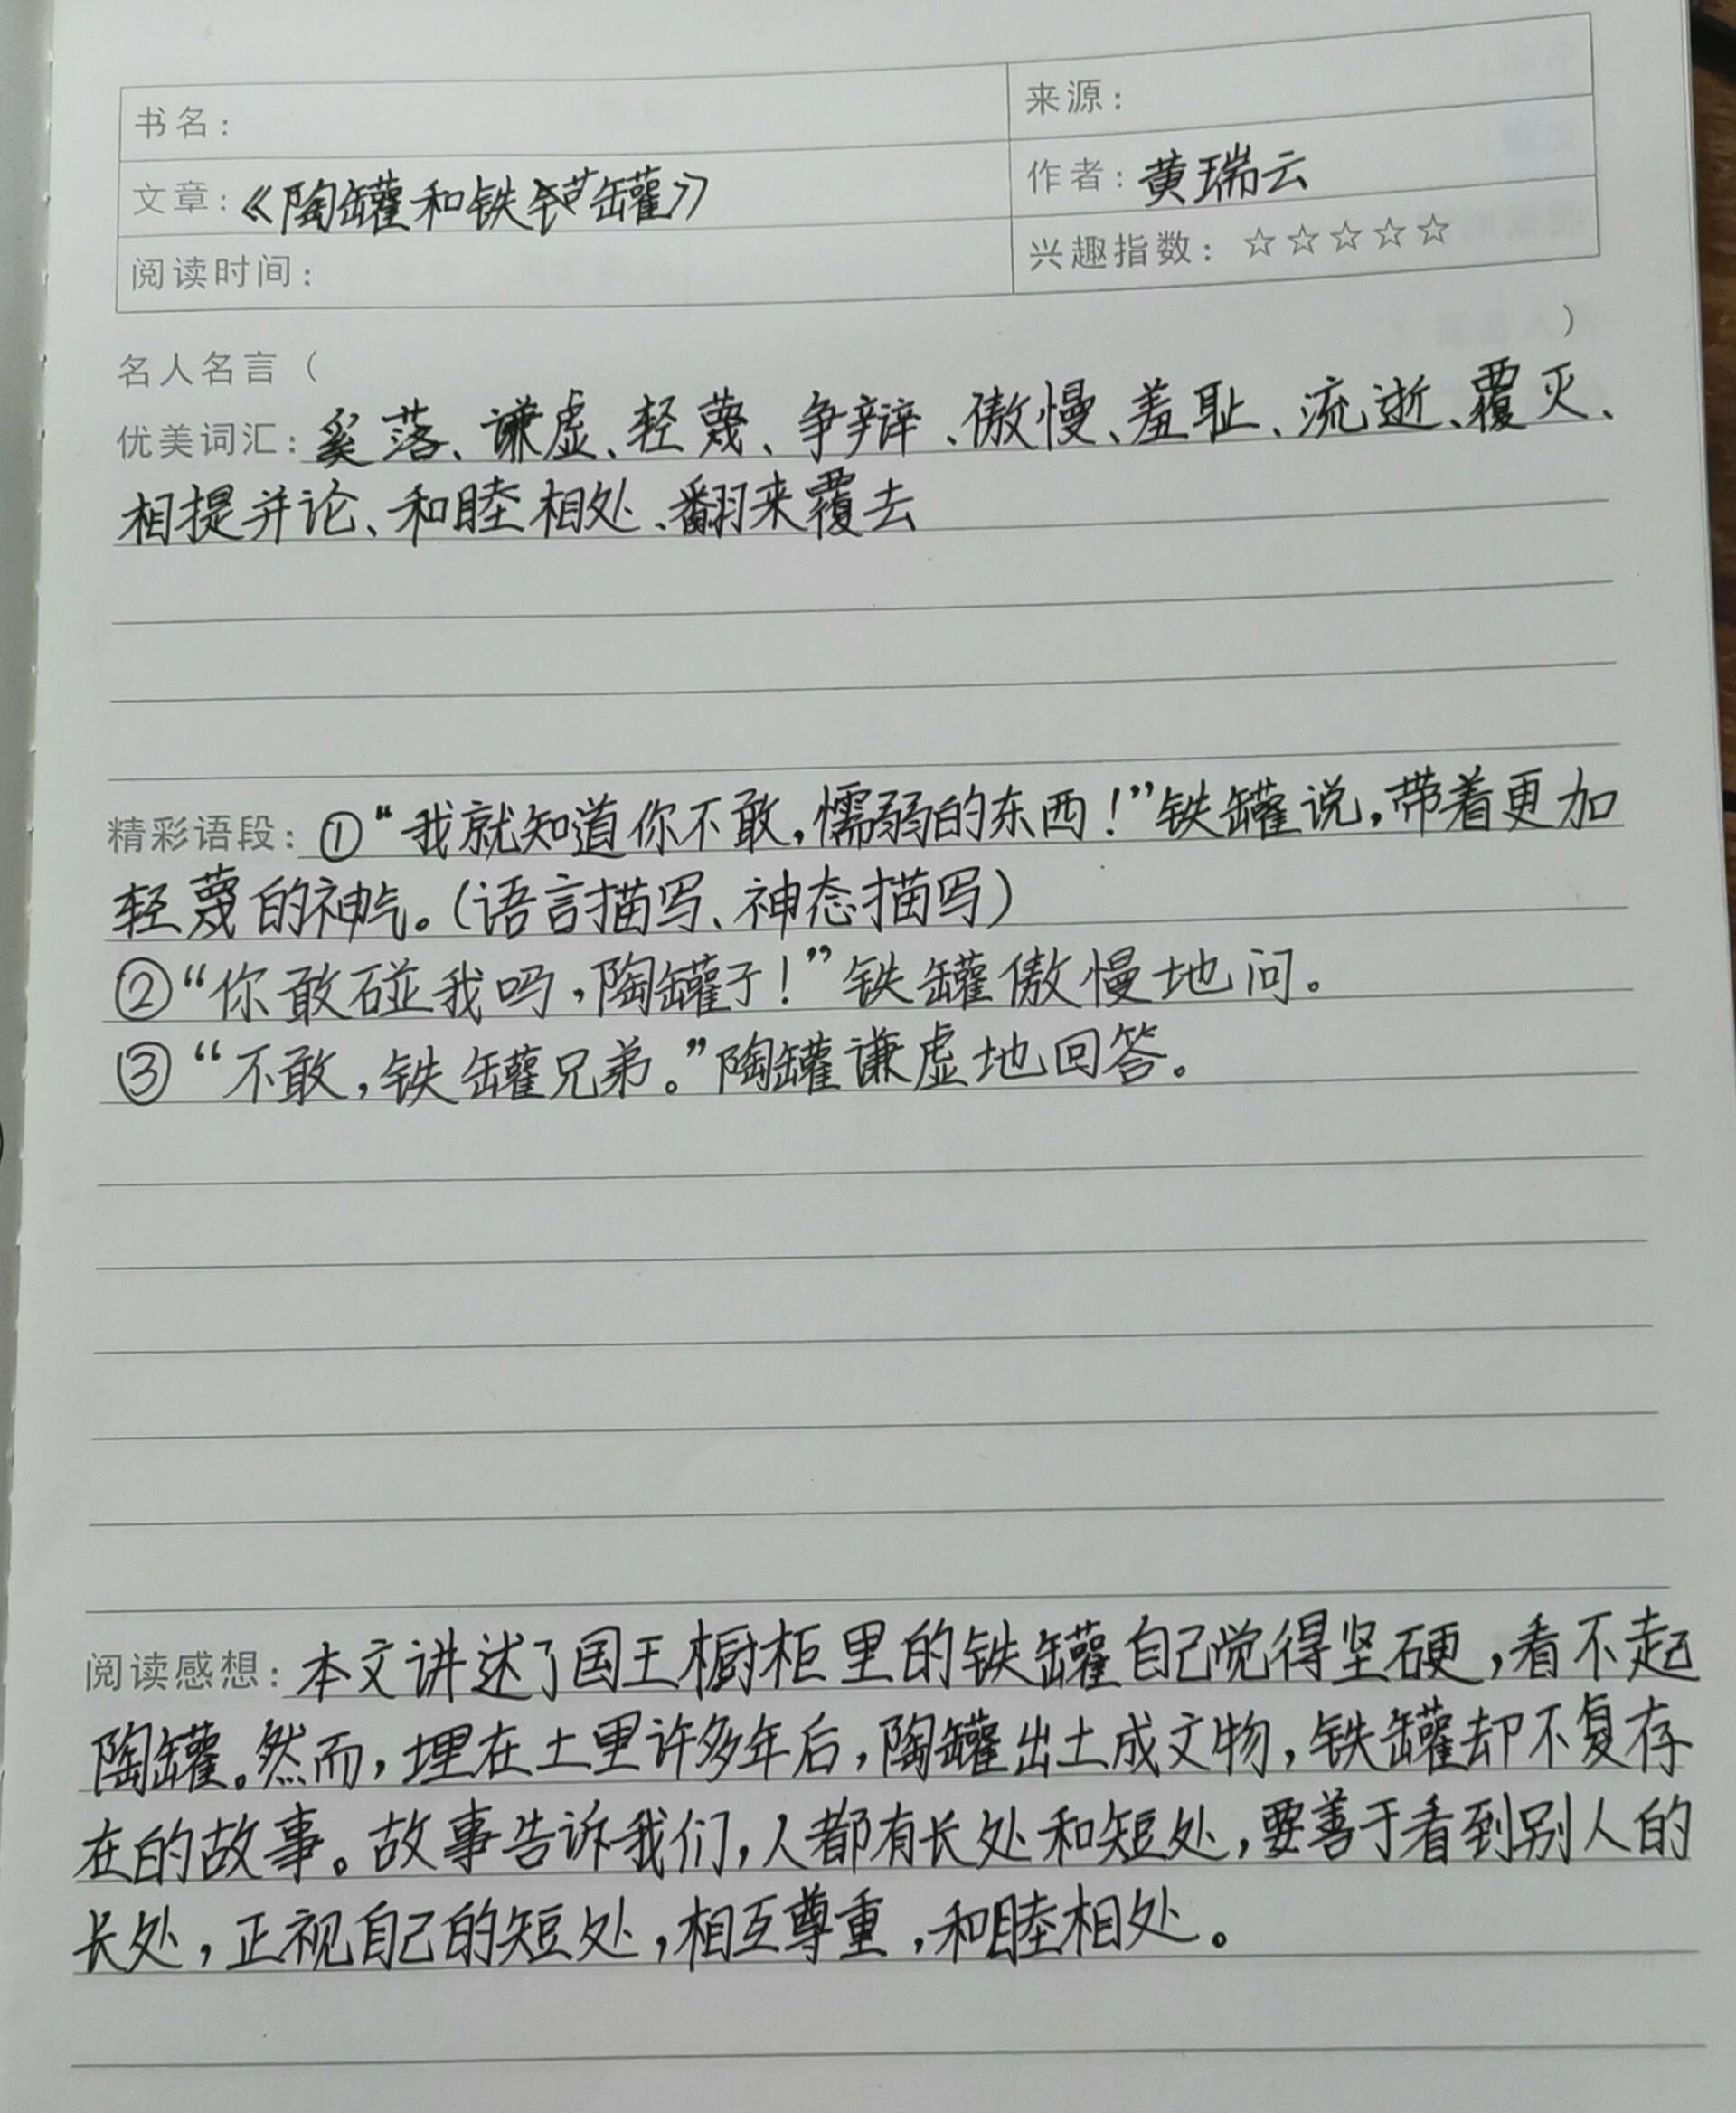 书名：
来源：
文章：《陶罐和铁罐》
作者：黄瑞云
阅读时间：
兴趣指数：☆☆☆☆☆
名人名言（ ）
优美词汇：奚落、谦虚、轻蔑、争辩、傲慢、羞耻、流逝、覆灭、
相提并论、和睦相处、翻来覆去
精彩语段：①“我就知道你不敢，懦弱的东西！”铁罐说，带着更加
轻蔑的神气。（语言描写、神态描写）
②“你敢碰我吗，陶罐子！”铁罐傲慢地问。
③“不敢，铁罐兄弟。”陶罐谦虚地回答。
阅读感想：本文讲述了国王橱柜里的铁罐自己觉得坚硬，看不起
陶罐。然而，埋在土里许多年后，陶罐出土成文物，铁罐却不复存
在的故事。故事告诉我们，人都有长处和短处，要善于看到别人的
长处，正视自己的短处，相互尊重，和睦相处。